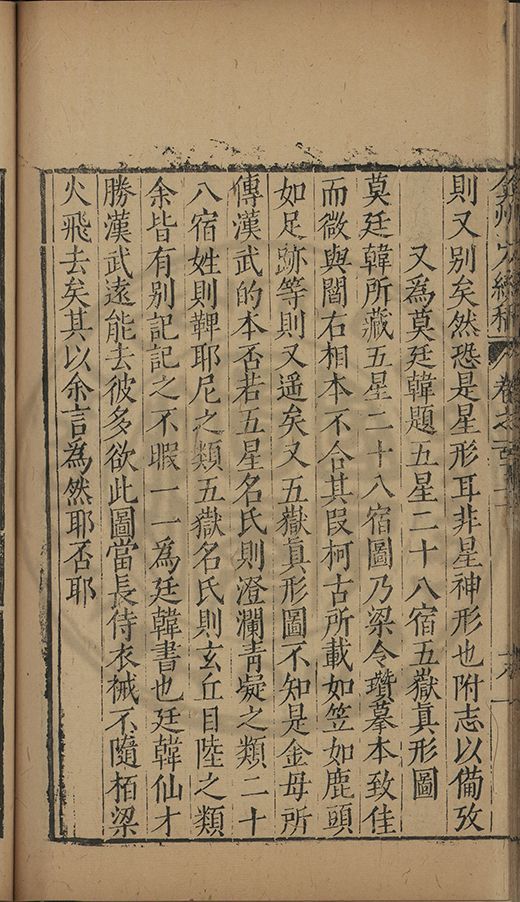 則又别矣然恐是星形耳非星神形也附志以備攷
又為莫廷韓題五星二十八宿五嶽真形圖
莫廷韓所藏五星二十八宿圖乃梁令瓚摹本致佳
而微與閻右相本不合其叚柯古所載如笠如鹿頭
如足跡等則又遥矣又五嶽真形圖不知是金母所
傳漢武的本否若五星名氏則澄瀾青凝之類二十
八宿姓則鞞耶尼之類五嶽名氏則玄丘目陸之類
余皆有别記記之不暇一一為廷韓書也廷韓仙才
勝漢武遠能去彼多欲此圖當長侍衣祴不隨栢梁
火飛去矣其以余言為然耶否耶